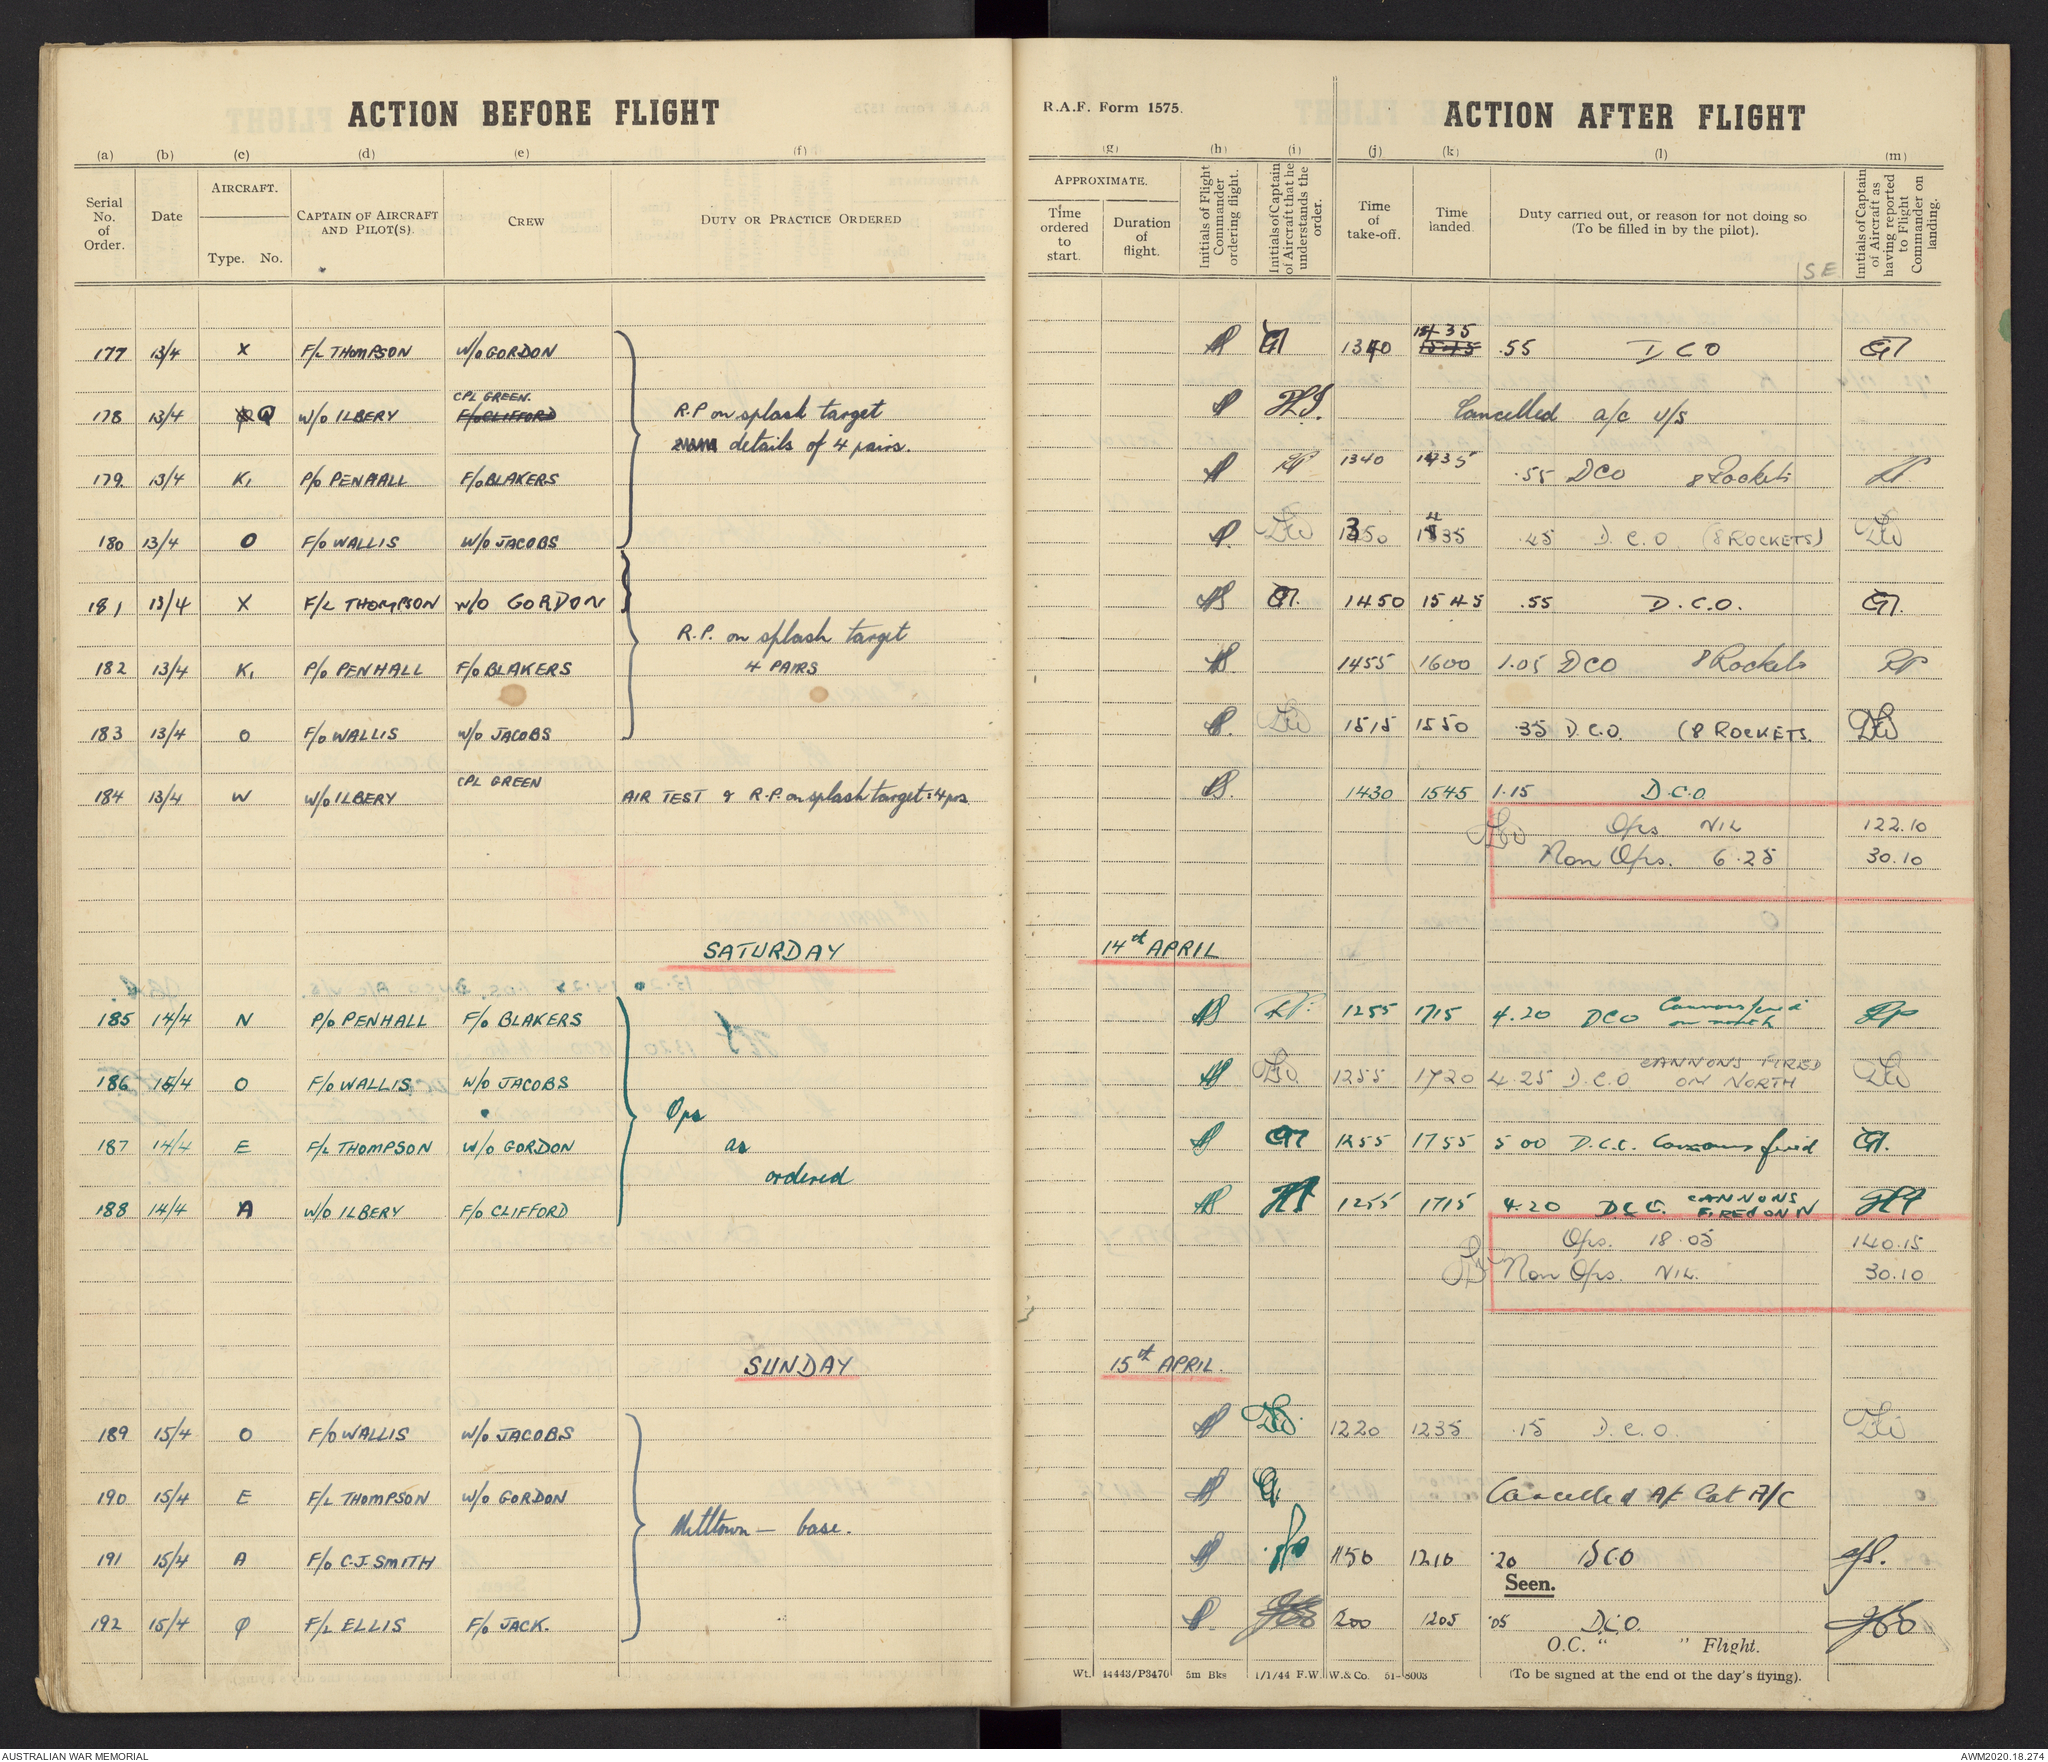 ACTION BEFORE FLIGHT
R.A.F. Form 1575.
ACTION AFTER FLIGHT
(a) (b) (c) (d) (e) (f) (g) (h) (i) (j) (k) (l) (m)
Serial No. of Order.
Date
AIRCRAFT.
Type. No.
CAPTAIN OF AIRCRAFT AND PILOT(S).
CREW
DUTY OR PRACTICE ORDERED
APPROXIMATE.
Time ordered to start.
Duration of flight.
Initials of Flight Commander ordering flight.
Initials of Captain of Aircraft that he understands the order.
Time of take-off.
Time landed.
Duty carried out, or reason for not doing so
(To be filled in by the pilot).
Initials of Captain of Aircraft as having reported to Flight Commander on landing.
S E
177 13/4 X F/L THOMPSON W/O GORDON 1340 1435 .55 D C O
178 13/4 Q W/O ILBERY CPL GREEN. F/O CLIFFORD Cancelled a/c u/s
R.P on splash target
details of 4 pairs.
179 13/4 K, P/O PENHALL F/O BLAKERS 1340 1435 .55 DCO 8 Rockets
180 13/4 O F/O WALLIS W/O JACOBS 1350 1435 .45 D.C.O (8 ROCKETS)
181 13/4 X F/L THOMPSON W/O GORDON 1450 1545 .55 D.C.O.
R.P. on splash target
4 PAIRS
182 13/4 K, P/O PENHALL F/O BLAKERS 1455 1600 1.05 DCO 8 Rockets
183 13/4 O F/O WALLIS W/O JACOBS 1515 1550 .35 D.C.O. (8 ROCKETS.
184 13/4 W W/O ILBERY CPL GREEN AIR TEST & R.P. on splash target: 4 prs 1430 1545 1.15 D.C.O.
Ops NIL 122.10
Non Ops. 6.25 30.10
SATURDAY 14th APRIL
185 14/4 N P/O PENHALL F/O BLAKERS 1255 1715 4.20 DCO Cannons fired on north
186 14/4 O F/O WALLIS W/O JACOBS 1255 1720 4.25 D.C.O CANNONS FIRED ON NORTH
Ops
as
ordered
187 14/4 E F/L THOMPSON W/O GORDON 1255 1755 5 00 D.C.C. Cannons fired
188 14/4 A W/O ILBERY F/O CLIFFORD 1255 1715 4.20 D.C.C. CANNONS FIRED ON N
Ops. 18.05 140.15
Non Ops. NIL. 30.10
SUNDAY 15th APRIL.
189 15/4 O F/O WALLIS W/O JACOBS 1220 1235 .15 D.C.O.
190 15/4 E F/L THOMPSON W/O GORDON Cancelled A/F Cat A/C
Milltown — base.
191 15/4 A F/O C.J. SMITH 1150 1210 .20 DCO
Seen.
192 15/4 Q F/L ELLIS F/O JACK. 1200 1205 .05 D.C.O.
O.C. " " Flight.
Wt. 44443/P3470 5m Bks 1/1/44 F.W. W.& Co. 51-8003
(To be signed at the end of the day's flying).
AUSTRALIAN WAR MEMORIAL
AWM2020.18.274